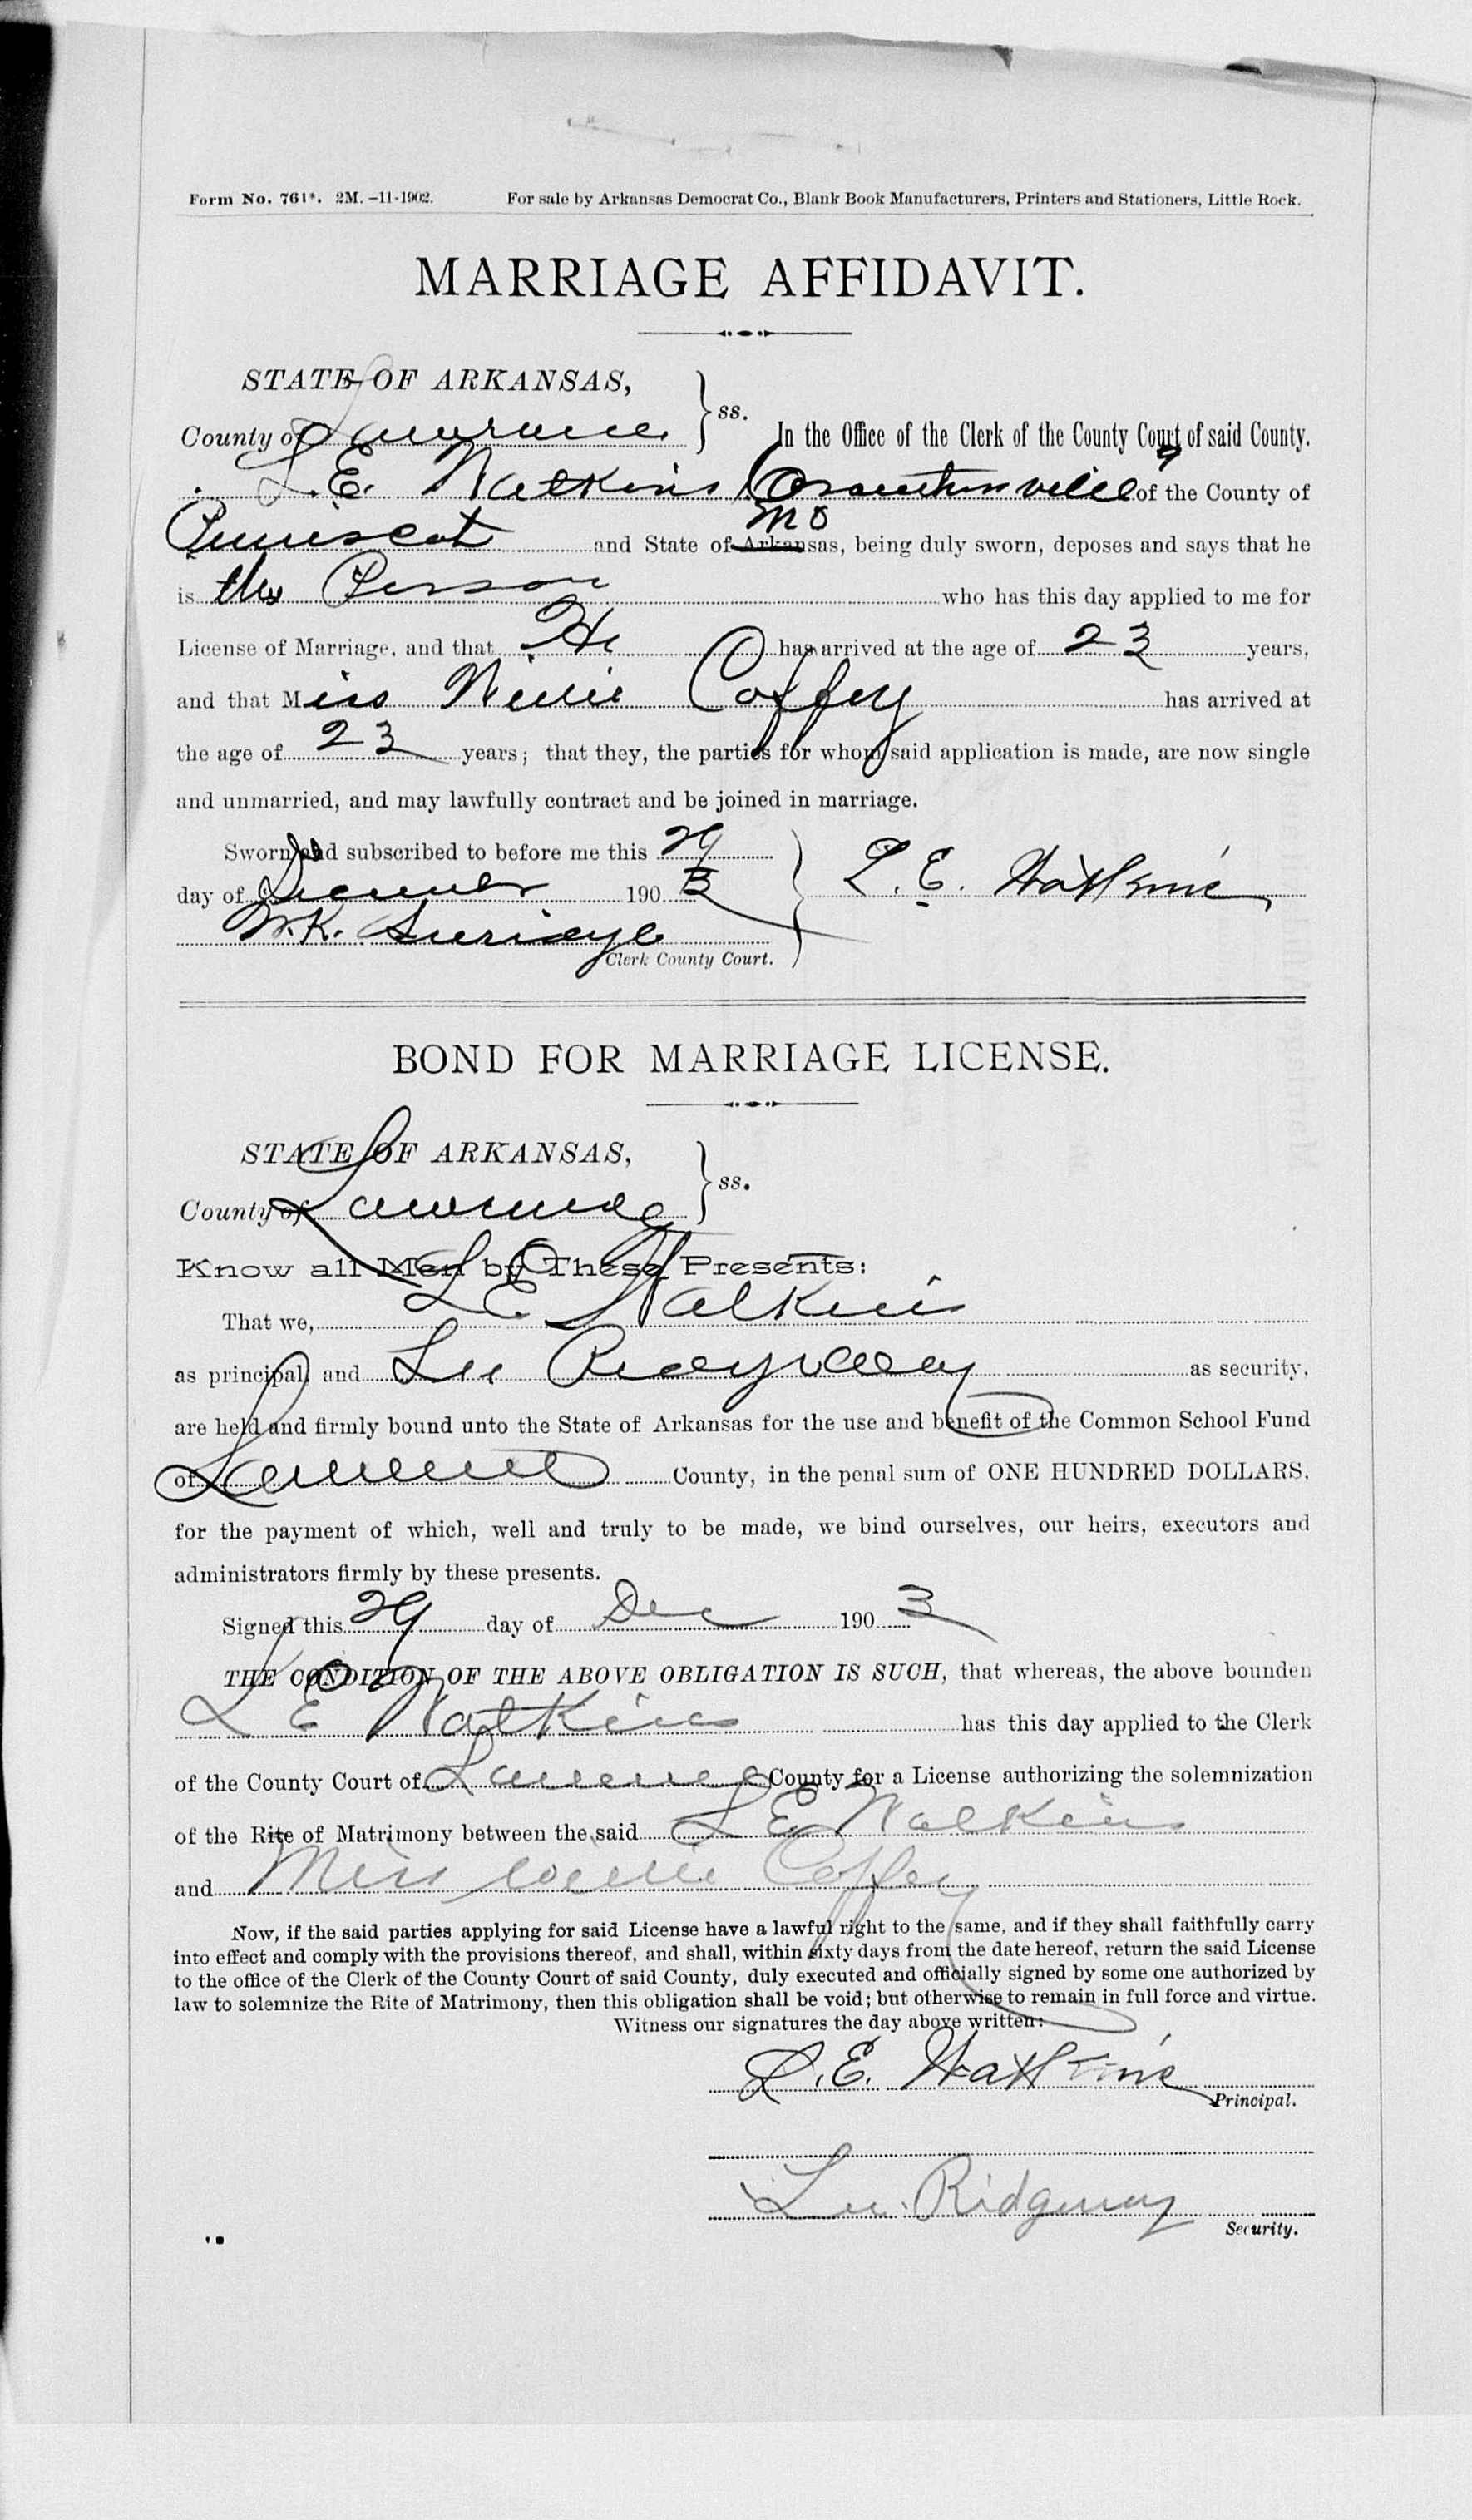 Form No. 761*. 2M.-11-1902. For sale by Arkansas Democrat Co., Blank Book Manufacturers, Printers and Stationers, Little Rock.
MARRIAGE AFFIDAVIT.
STATE OF ARKANSAS,
County of Lawrence } ss. In the Office of the Clerk of the County Court of said County.
L. E. Watkins of the County of
Pemiscot and State of Arkansas, Mo being duly sworn, deposes and says that he
is the Person who has this day applied to me for
License of Marriage, and that He has arrived at the age of 23 years,
and that Miss Willie Coffey has arrived at
the age of 23 years; that they, the parties for whom said application is made, are now single
and unmarried, and may lawfully contract and be joined in marriage.
Sworn and subscribed to before me this 29
day of December 1903 } L. E. Watkins
W. K.
Clerk County Court.
BOND FOR MARRIAGE LICENSE.
STATE OF ARKANSAS,
County of Lawrence } ss.
Know all Men by These Presents:
That we, L E Watkins
as principal, and Lee Ridgway as security,
are held and firmly bound unto the State of Arkansas for the use and benefit of the Common School Fund
of Lawrence County, in the penal sum of ONE HUNDRED DOLLARS,
for the payment of which, well and truly to be made, we bind ourselves, our heirs, executors and
administrators firmly by these presents.
Signed this 29 day of Dec 1903
THE CONDITION OF THE ABOVE OBLIGATION IS SUCH, that whereas, the above bounden
L E Watkins has this day applied to the Clerk
of the County Court of Lawrence County for a License authorizing the solemnization
of the Rite of Matrimony between the said L E Watkins
and Miss Willie Coffey
Now, if the said parties applying for said License have a lawful right to the same, and if they shall faithfully carry
into effect and comply with the provisions thereof, and shall, within sixty days from the date hereof, return the said License
to the office of the Clerk of the County Court of said County, duly executed and officially signed by some one authorized by
law to solemnize the Rite of Matrimony, then this obligation shall be void; but otherwise to remain in full force and virtue.
Witness our signatures the day above written:
L. E. Watkins
Principal.
Lee Ridgway
Security.